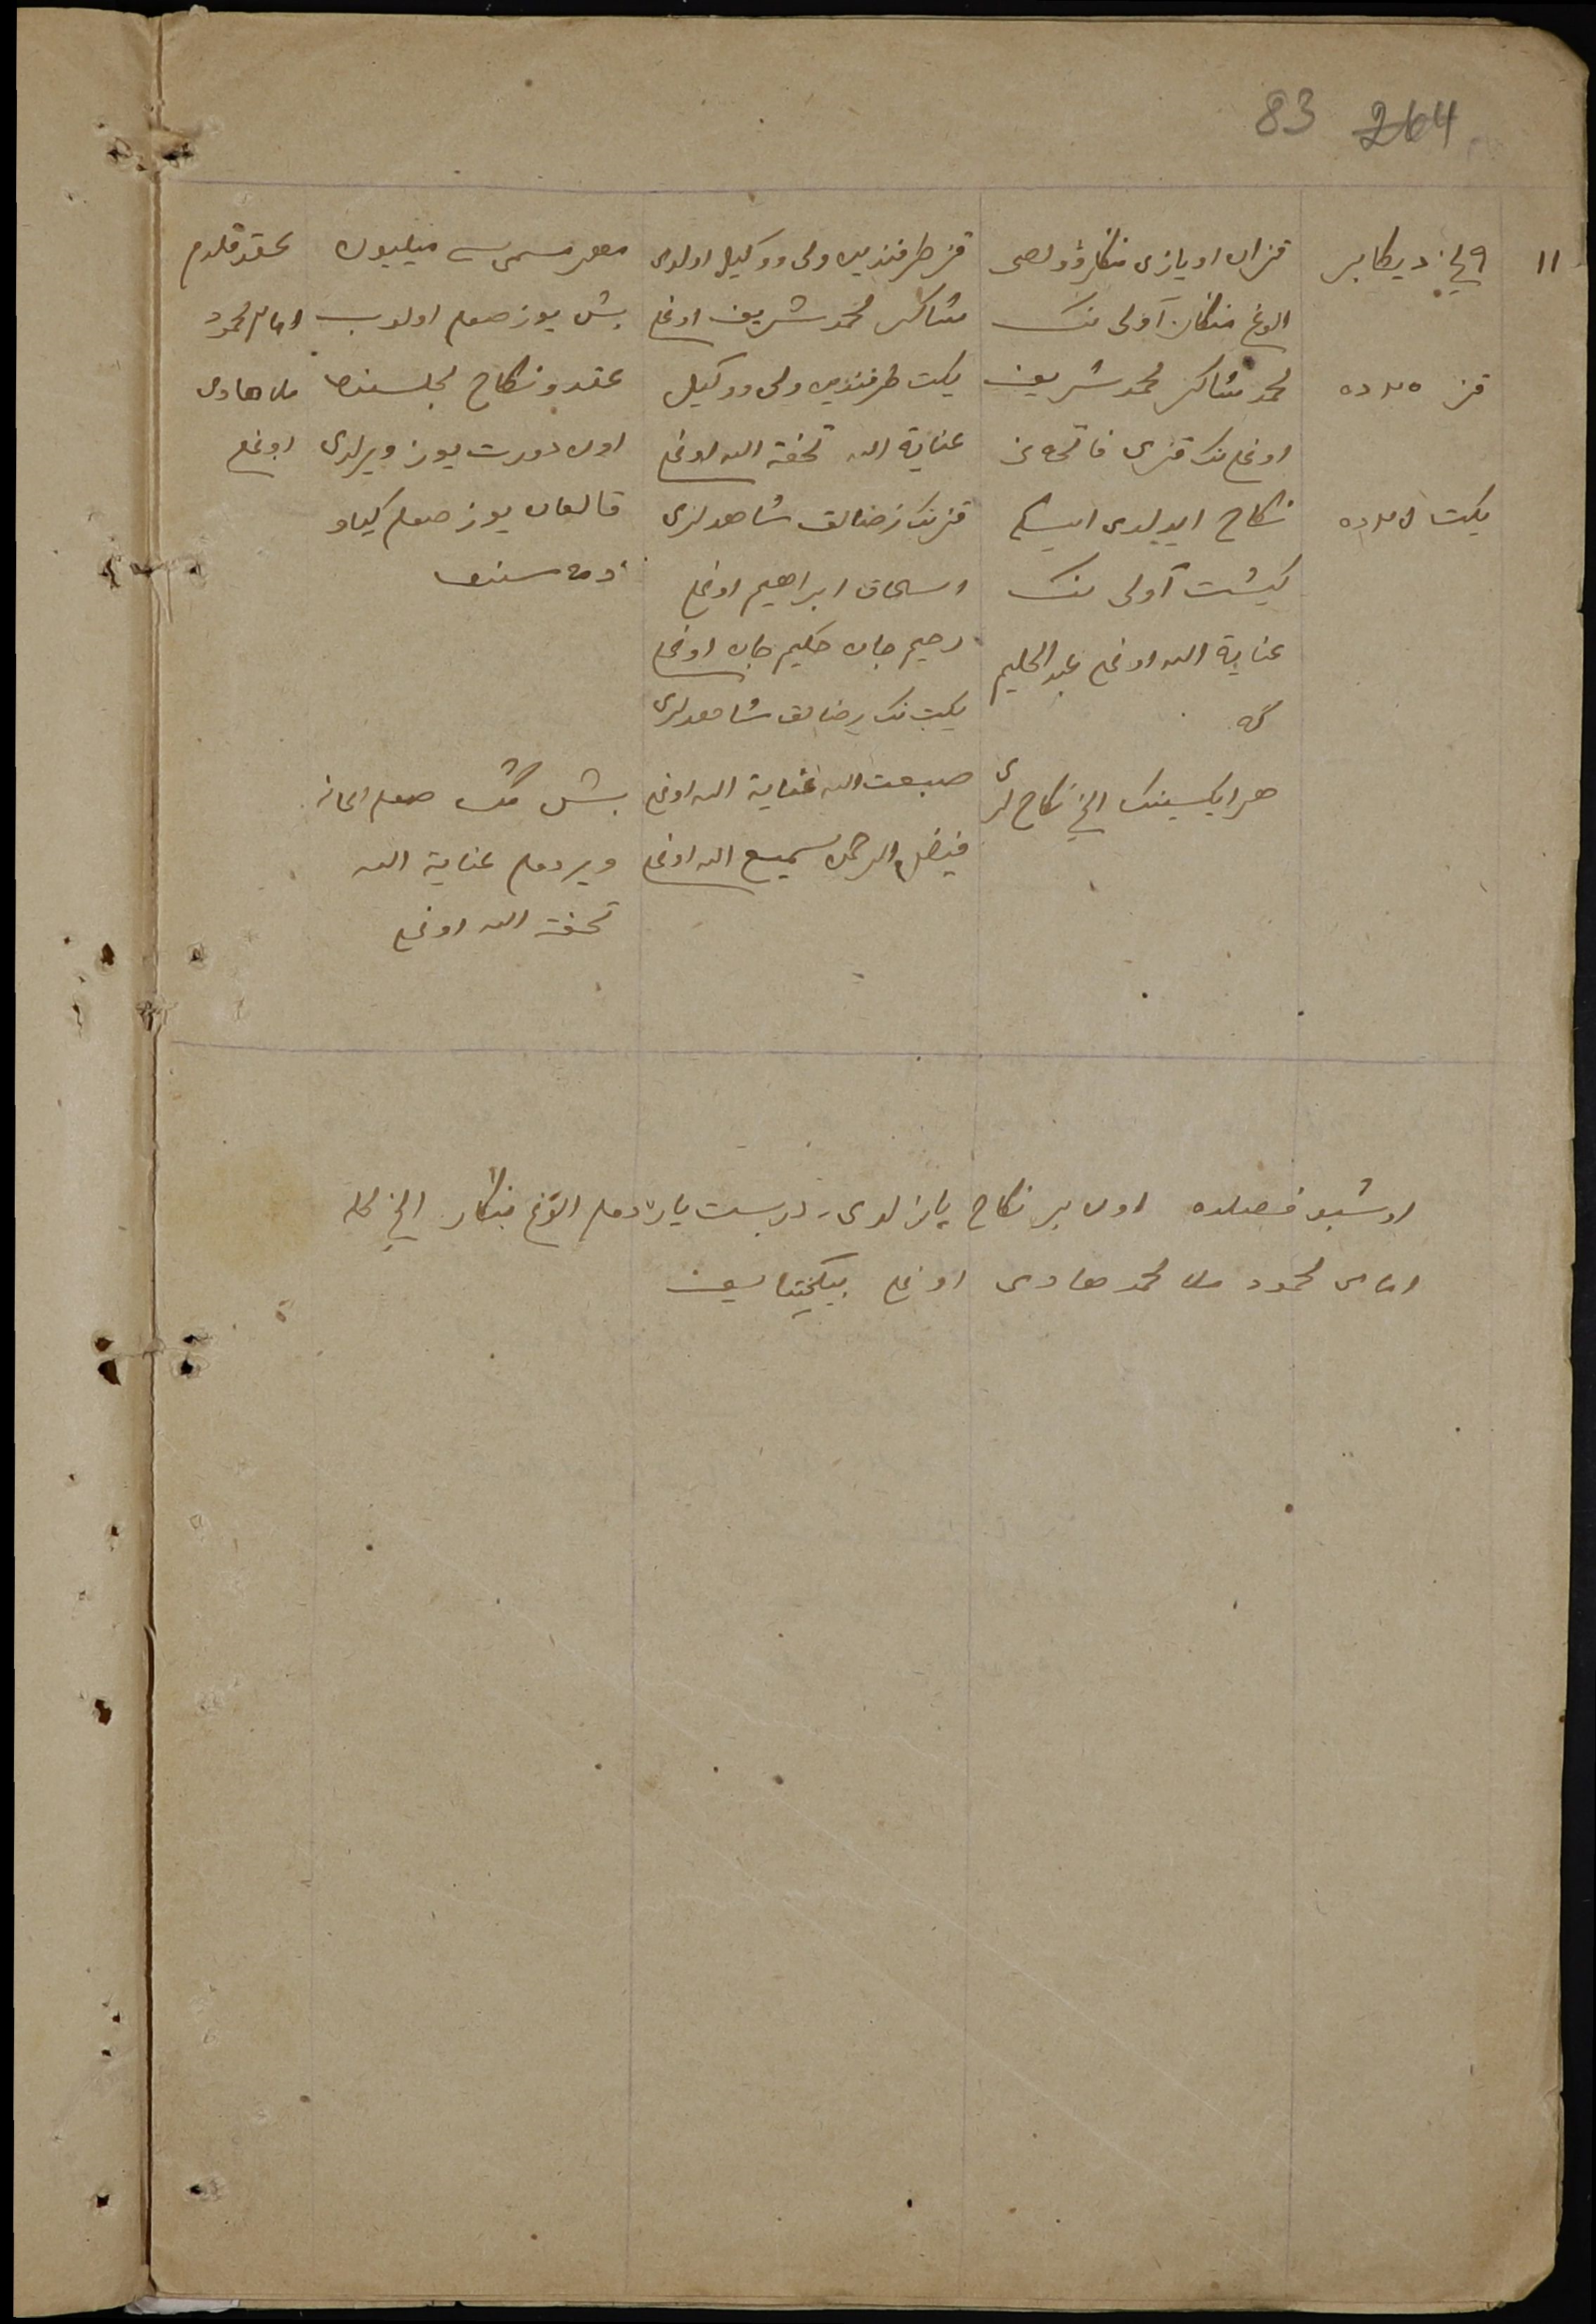 83 264
۱۱
۹ نچی دیکابر
قز ۲۵ ده
یکت ده
قزان اویازی منکار وولصی
الوغ منکار آولی ننک
محمد شاکر محمد شریف
اوغلی ننک قزی فاتحه نی
نکاح ایدلدی ایسکی
کیشت آولی ننک
عنایة الله اوغلی عبد الحلیم
گه
هر ایکسینک الخ نکاح لری
قز طرفندین ولی و وکیل اولدی
شاکر محمد شریف اوغلی
یکت طرفندین ولی و وکیل
عنایة الله تحفة الله اوغلی
قزننک رضالق شاهدلری
اسحاق ابراهیم اوغلی
رحیم جان حکیم جان اوغلی
یکیت ننک رضالق شاهدلری
صبغت الله عنایة الله اوغلی
فیض الرحمن سمیع الله اوغلی
مهر مسمی سی میلیون
بش یوز صوم اولوب
عقد و نکاح مجلسنده
اون دورت یوز ویرلدی
قالغان یوز صوم کیاو
ذمه سنده
بش منک صوم اعانه
ویردم عنایة الله
تحفة الله اوغلی
عقد قلدم
امام محمود
ملا هادی
اوغلی
اوشبو فصلده اون بر نکاح یازلدی۔ دربست یازدم الوغ منکار الخ محله
امامی محمود ملا محمد هادی اوغلی بیکچنتایف